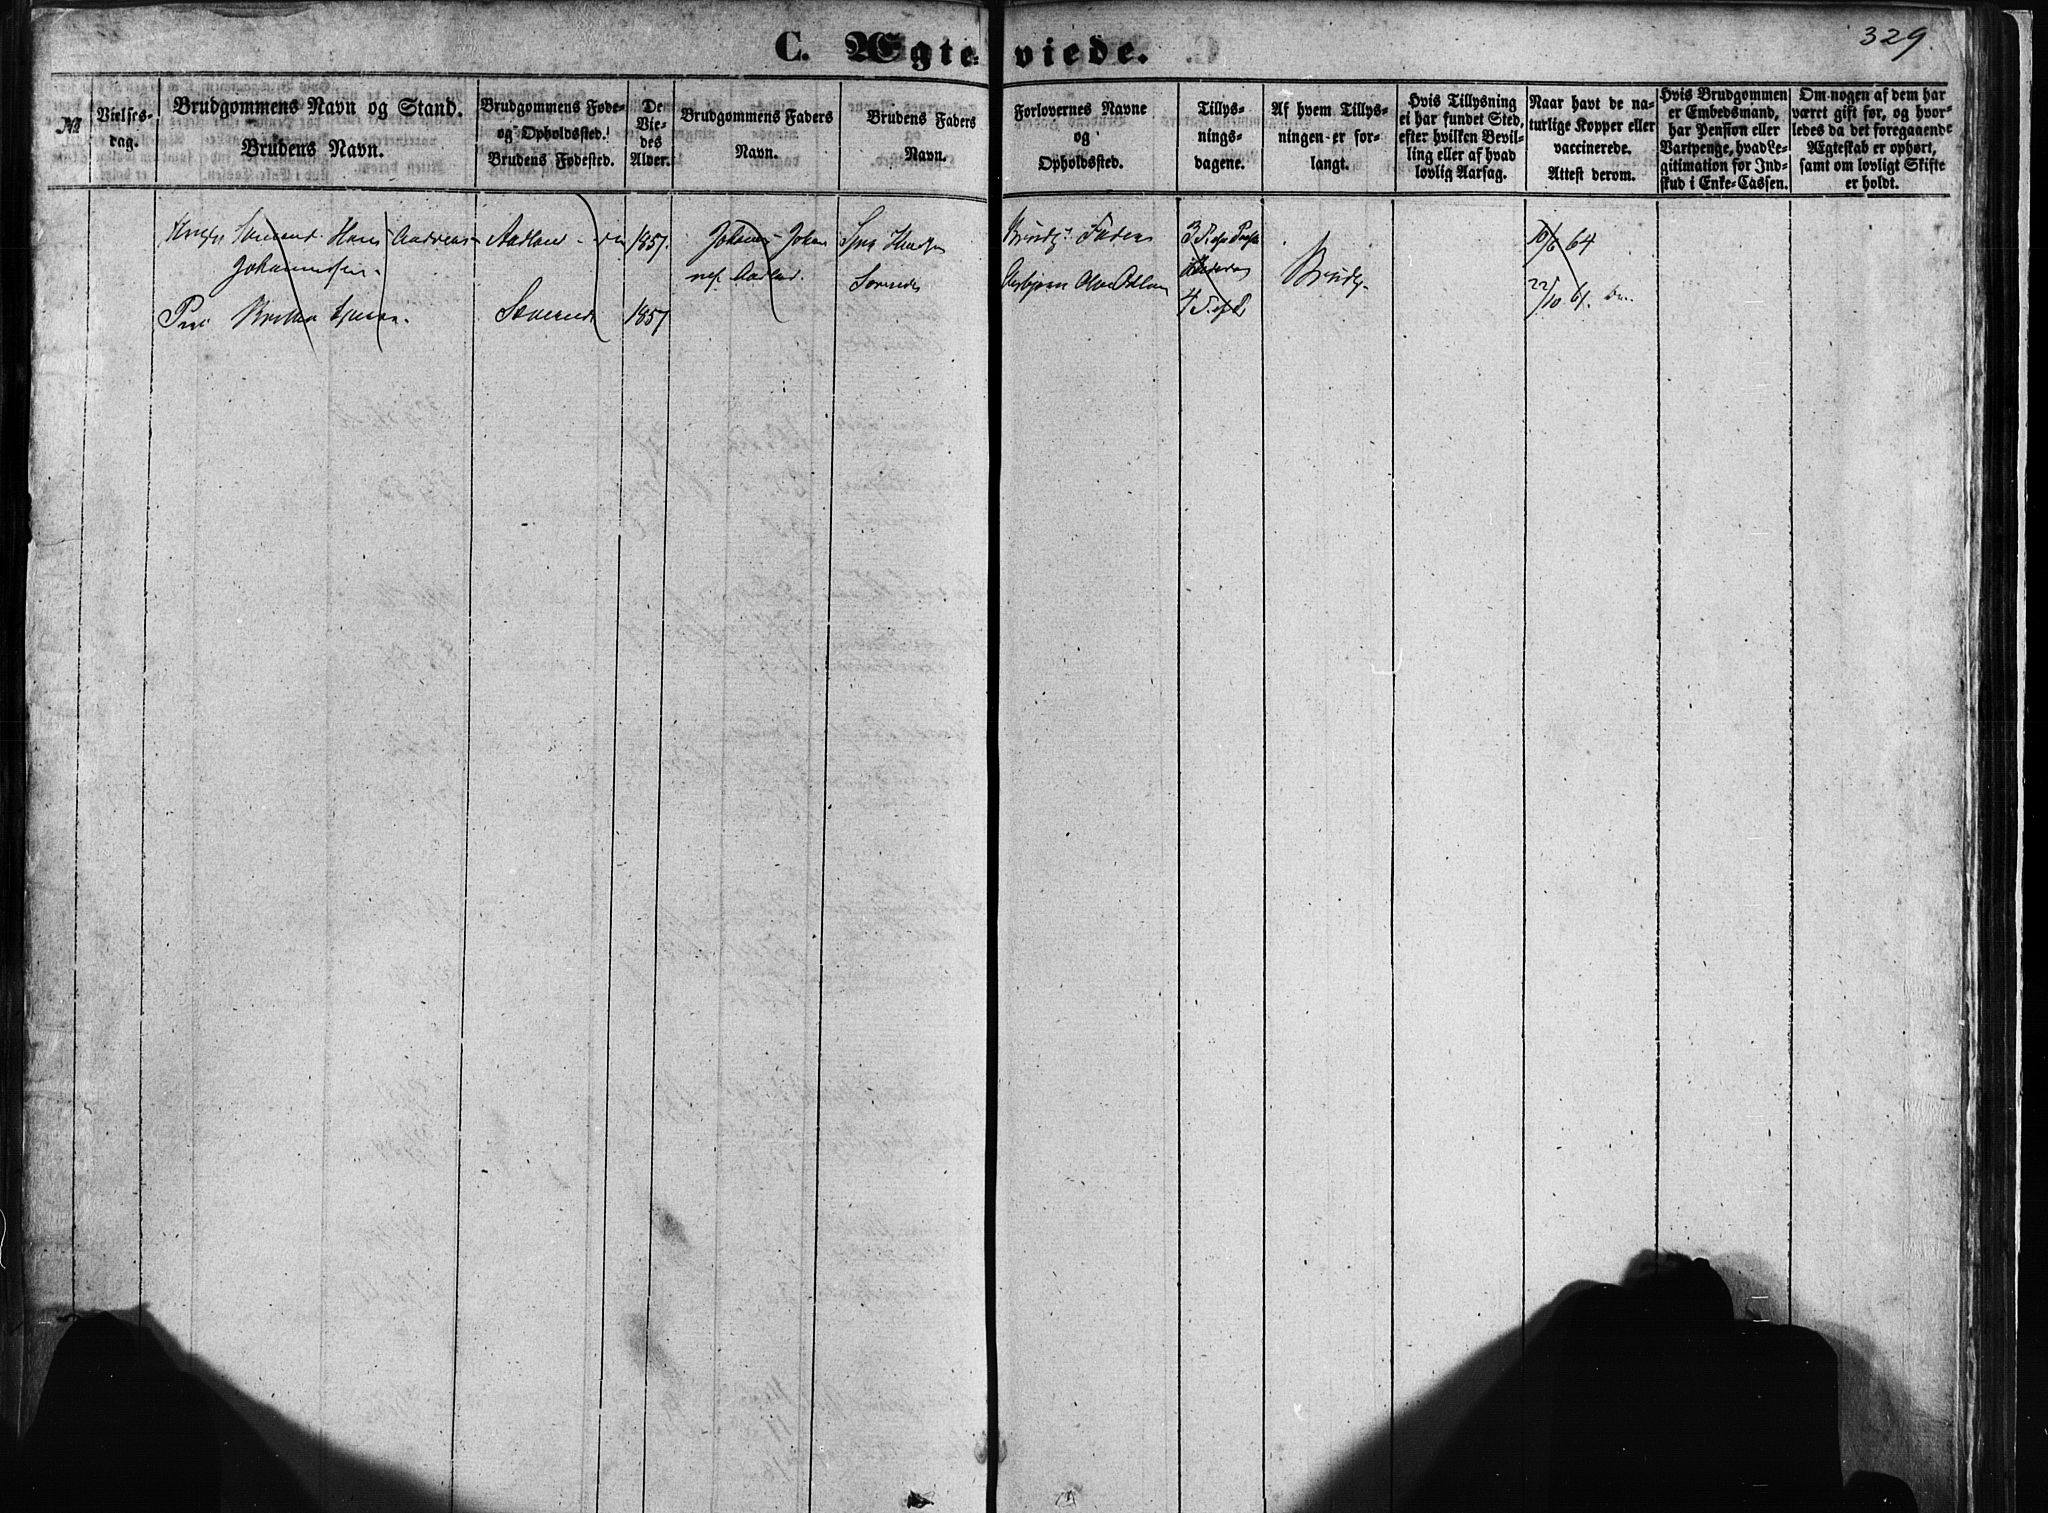 329.
C. Ægteviede.
No
Vielses-
dag.
Brudgommens Navn og Stand.
Brudens Navn.
Brudgommens Føde-
og Opholdssted.
Brudens Fødested.
De
Vie-
des
Alder.
Brudgommens Faders
Navn.
Brudens Faders
Navn.
Forlovernes Navne
og
Opholdssted.
Tillys-
nings-
dagene.
Af hvem Tillys-
ningen er for-
langt.
Hvis Tillysning
ei har fundet Sted,
efter hvilken Bevil-
ling eller af hvad
lovlig Aarsag.
Naar havt de na-
turlige Kopper eller
vaccinerede.
Attest derom.
Hvis Brudgommen
er Embedsmand,
har Pension eller
Vartpenge, hvad Le-
gitimation for Ind-
skud i Enke-Cassen.
Om nogen af dem har
været gift før, og hvor-
ledes da det foregaaende
Ægteskab er ophørt,
samt om lovligt Skifte
er holdt.
Hans Andreas
Johannessen
Pige Brita
Aadland
1857
1857
Johannes Johan
nes. Aadland.
Brudg. Fader
Brudg.
10/6 64
22/10 61.